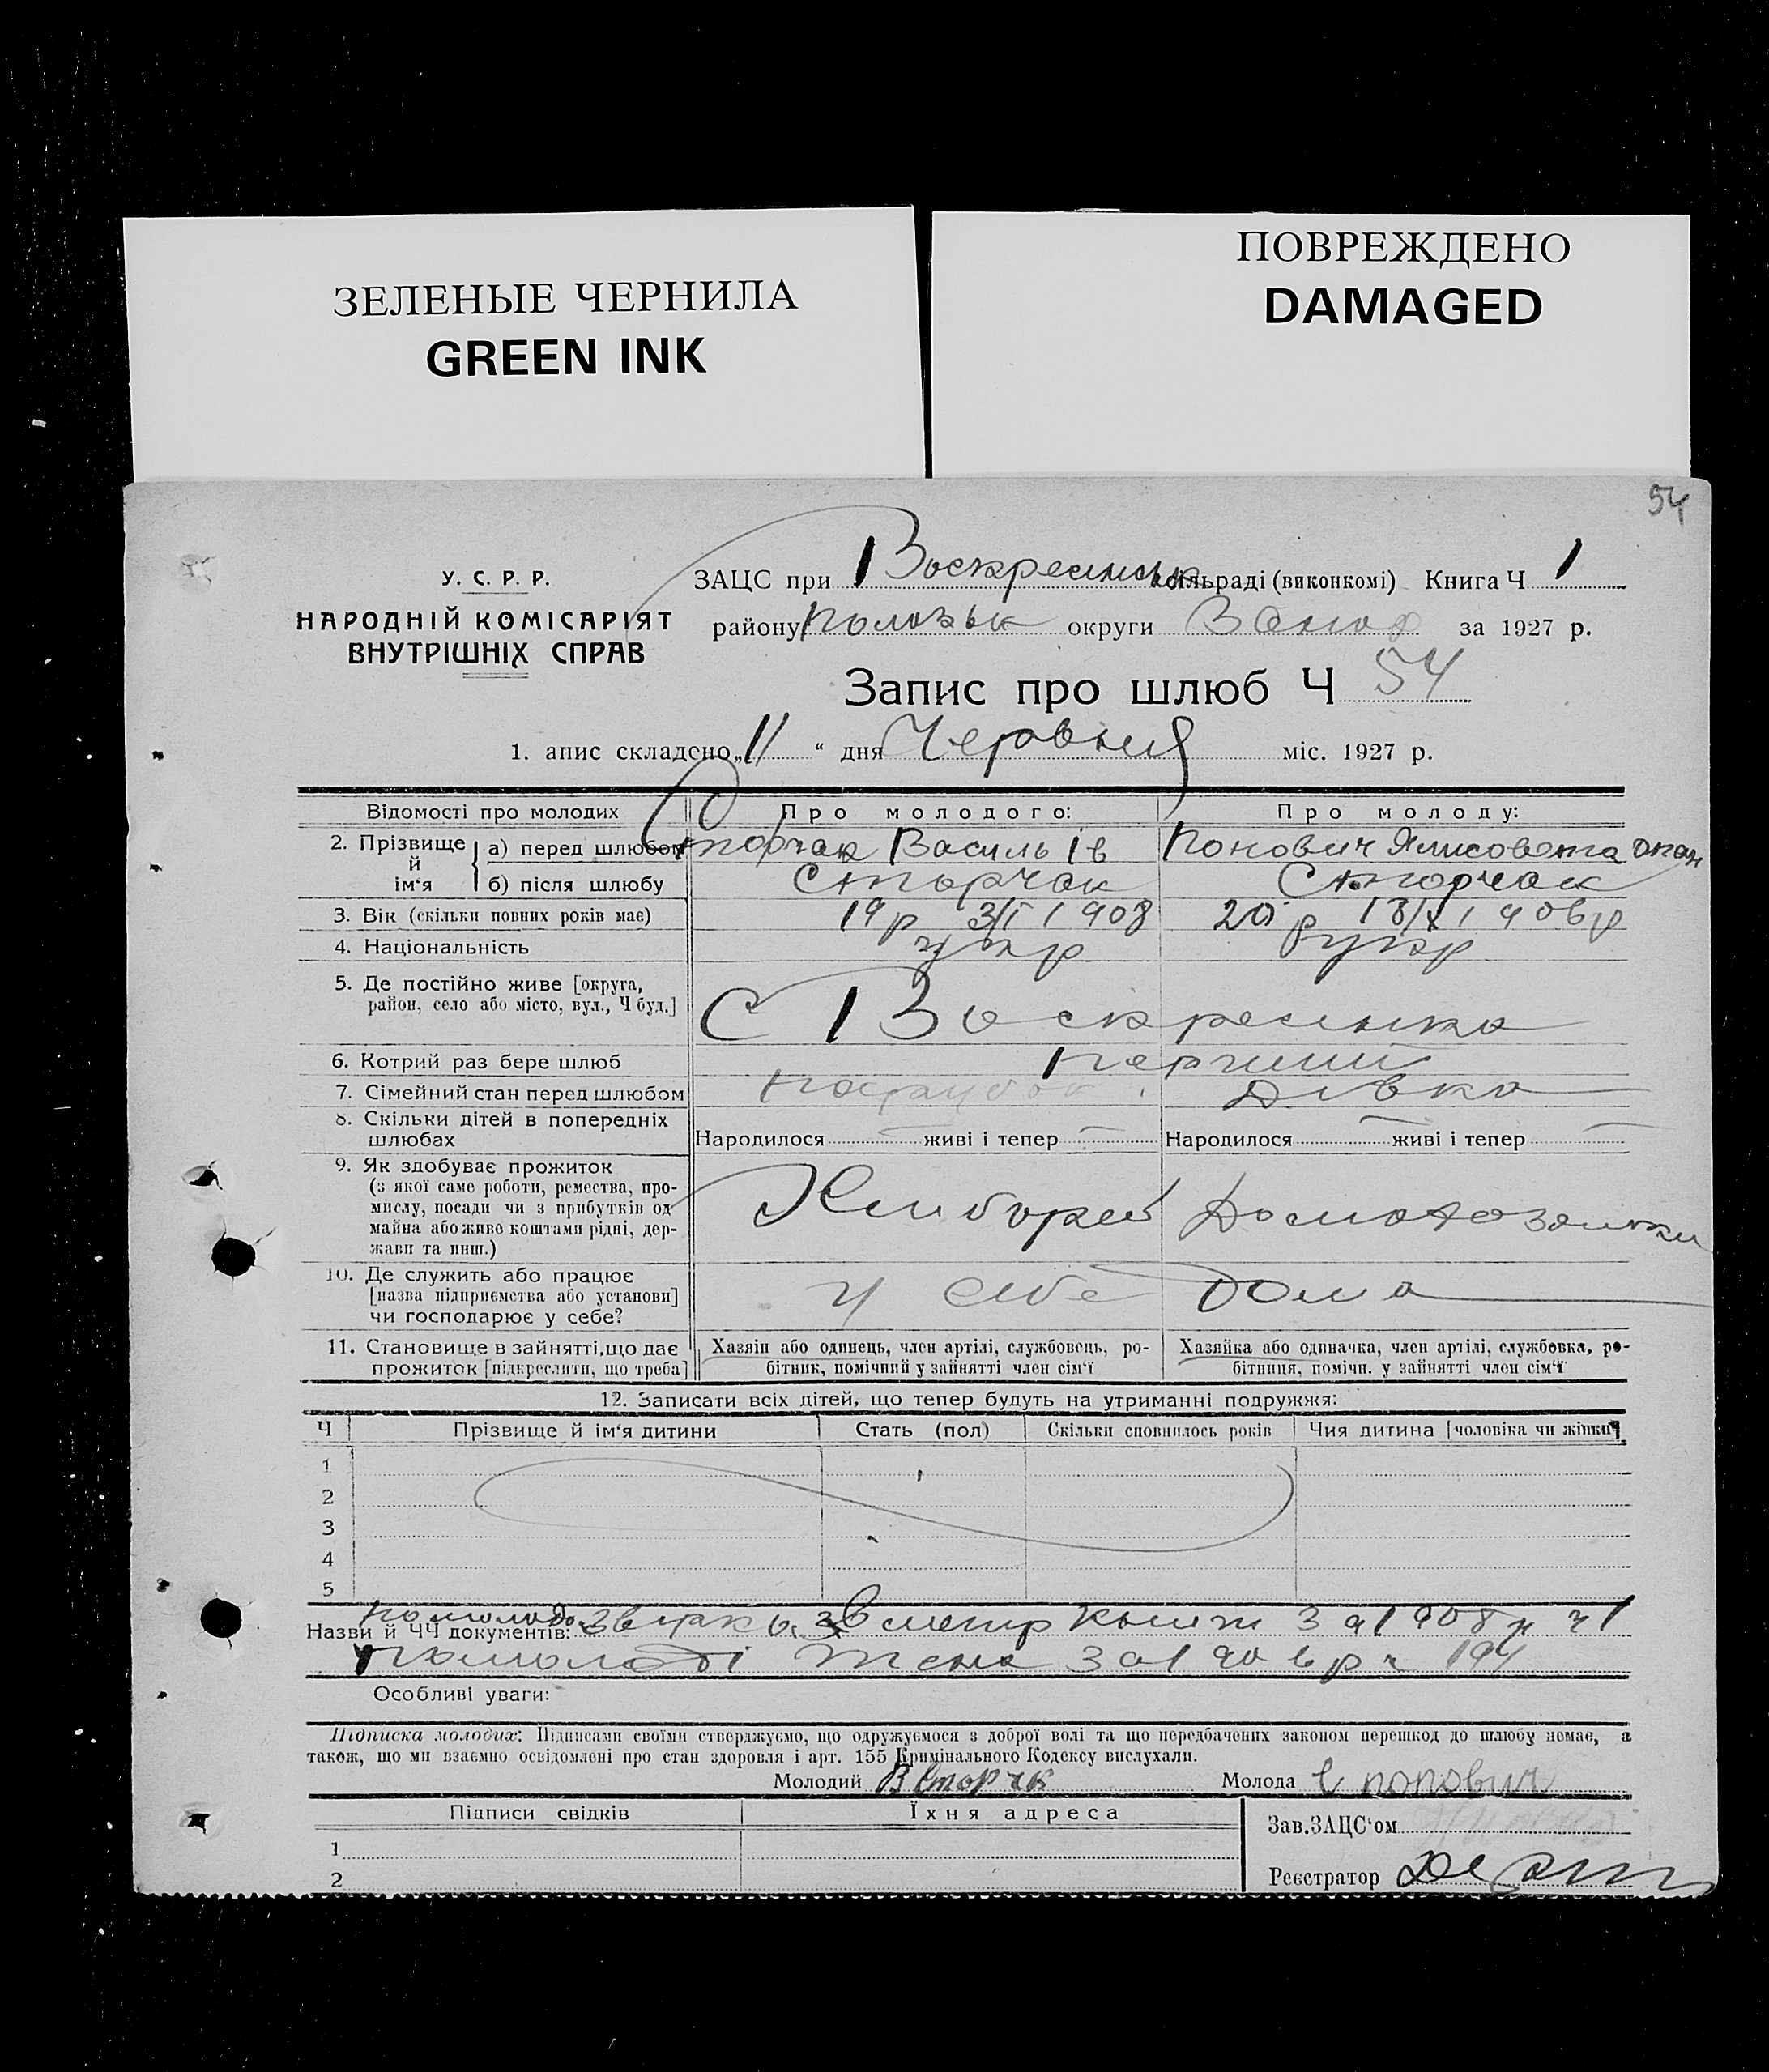 ЗЕЛЕНЫЕ ЧЕРНИЛА
GREEN INK
ПОВРЕЖДЕНО
DAMAGED
54
У. С. Р. Р.
НАРОДНІЙ КОМІСАРІЯТ
ВНУТРІШНІХ СПРАВ
ЗАЦС при Воскресенськ сільраді (виконкомі) Книга Ч 1
району Пологськ округи Запор за 1927 р.
Запис про шлюб Ч 54
1. апис складено „11“ дня Червня міс. 1927 р.
Відомості про молодих Про молодого: Про молоду:
2. Прізвище й ім‘я а) перед шлюбом Сторчак Василь Ів Попович Єлисовета
б) після шлюбу Сторчак Сторчак
3. Вік (скільки повних років має) 19 р 3/I 1908 20 р 18/X 1906 р
4. Національність укр укр
5. Де постійно живе [округа,
район, село або місто, вул., Ч буд.] С Воскресенка
6. Котрий раз бере шлюб перший
7. Сімейний стан перед шлюбом парубок Дівка
8. Скільки дітей в попередніх
шлюбах Народилося — живі і тепер — Народилося — живі і тепер —
9. Як здобуває прожиток
(з якої саме роботи, ремества, про-
мислу, посади чи з прибутків од
майна або живе коштами рідні, дер-
жави та инш.) Хлибороб Домохозяйка
10. Де служить або працює
[назва підприємства або установи]
чи господарює у себе? у себе дома
11. Становище в зайнятті, що дає Хазяін або одинець, член артілі, службовець, ро- Хазяйка або одиначка, член артілі, службовка, ро-
прожиток [підкреслити, що треба] бітник, помічний у зайнятті член сім‘ї бітниця, помічн. у зайнятті член сім‘ї
12. Записати всіх дітей, що тепер будуть на утриманні подружжя:
Ч Прізвище й ім‘я дитини Стать (пол) Скільки сповнилось років Чия дитина [чоловіка чи жінки]
1
2
3
4
5
Назви й ЧЧ документів: по молодо звірка з метр книги за 1908 р ч 1
по молоді теж за 1906 р ч 194
Особливі уваги:
Підписка молодих: Підписами своїми стверджуємо, що одружуємося з доброї волі та що передбачених законом перешкод до шлюбу немає, а
також, що ми взаємно освідомлені про стан здоровля і арт. 155 Кримінального Кодексу вислухали.
Молодий В Сторчк Молода Є Попович
Підписи свідків Їхня адреса
Зав. ЗАЦС‘ом
1
2
Реєстратор